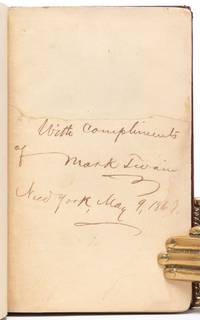 With Compliments
of Mark Twain
New York, May 9, 1867.